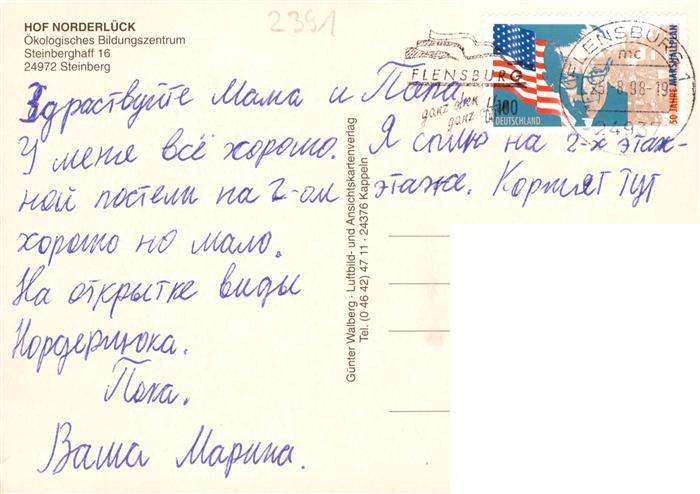 2391
HOF NORDERLÜCK
Ökologisches Bildungszentrum
Steinberghaff 16
24972 Steinberg
FLENSBURG
ganz oben
ganz
100
DEUTSCHLAND
50 JAHRE MARSHALLPLAN
FLENSBURG
mc
.8.98-19
24937
Здраствуйте Мама и Папа.
У меня всё хорошо. Я сплю на 2-х этаж-
ной постели на 2-ом этаже. Кормят тут
хорошо но мало.
На открытке виды
Нордерлюка.
Пока.
Ваша Марина.
Günter Walberg · Luftbild- und Ansichtskartenverlag
Tel. (0 46 42) 47 11 · 24376 Kappeln